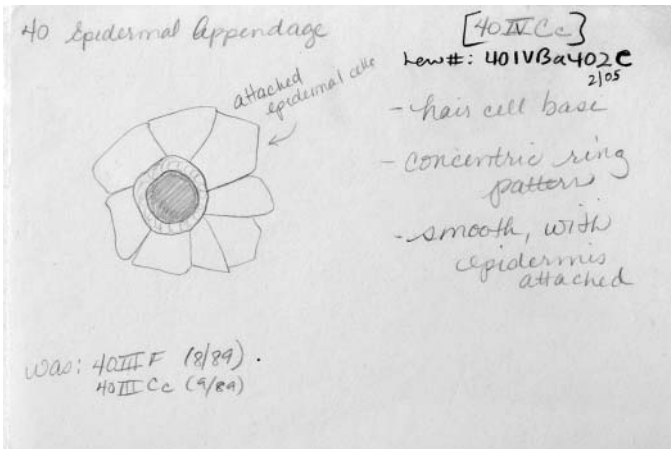 40 Epidermal Appendage
[40 IV Cc]
New#: 40IVBa402C
2/05
attached
epidermal cells
- hair cell base
- concentric ring
pattern
- smooth, with
epidermis
attached
was: 40 III F (8/89).
40 III Cc (9/89)